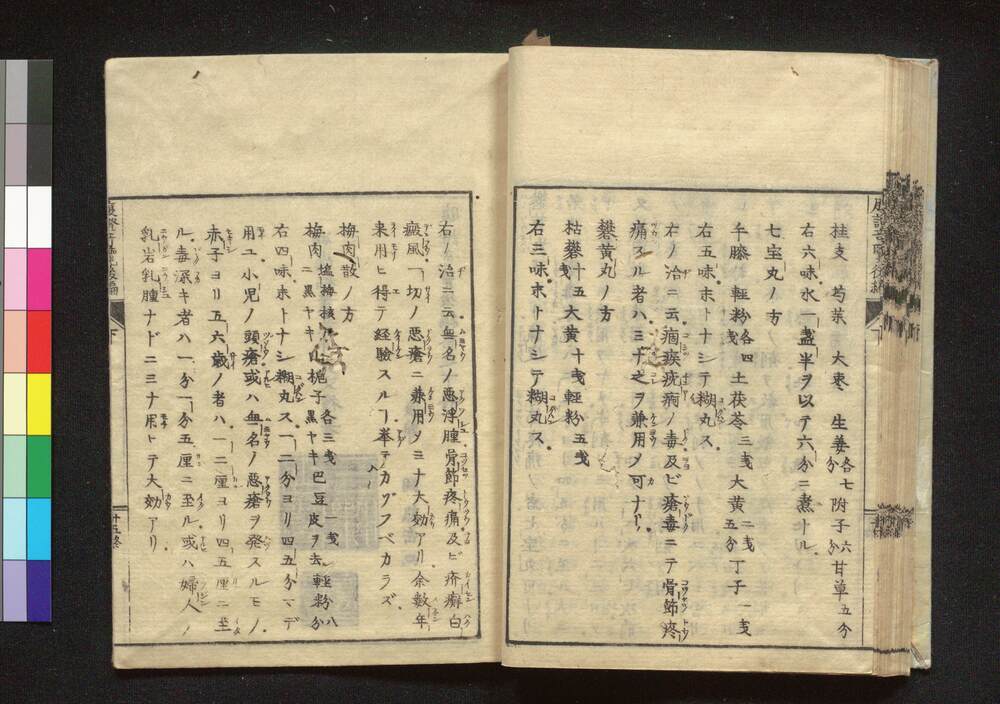 桂支 芍薬 大棗 生姜各七分 附子六分 甘草五分
右六味水一盞半ヲ以テ六分ニ煮トル
七宝丸ノ方
牛膝 軽粉各四戔 土茯苓三戔 大黄二戔五分 丁子一戔
右五味末トナシテ糊丸ス
右ノ治ニ云痼疾疣痢ノ毒及ビ瘡毒ニテ骨節疼
痛スル者ハ三ヲ之ヲ兼用メ可ナリ
礬黄丸ノ方
枯礬十五戔 大黄十戔 軽粉五戔
右三味末トナシテ糊丸ス
右ノ治ニ云無名ノ悪浮腫骨節疼痛及ビ疥癬白
癜風一切ノ悪瘡ニ兼用メミナ大効アリ余数年
来用ヒ得テ経験スル挙テカゾフベカラズ
梅肉散ノ方
梅肉 塩梅核ヲ去ル 黒ヤキ 山梔子 黒ヤキ 各三戔 巴豆 皮ヲ去 一戔 軽粉八分
右四味末トナシ糊丸ス一二分ヨリ四五分マデ
用ユ小児ノ頭瘡或ハ無名ノ悪瘡ヲ発スルモノ
赤子ヨリ五六歳ノ者ハ一二厘ヨリ四五厘ニ至
ル毒深キ者ハ一分一分五厘ニ至ル或ハ婦人ノ
乳岩乳腫ナドニミナ用ヒテ大効アリ
下
十五終